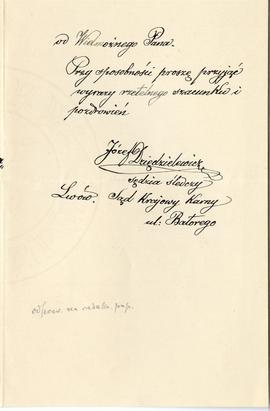 od Wielmożnego Pana.
Przy sposobności proszę przyjąć
wyrazy rzetelnego szacunku i
pozdrowień
Józef Dzędzielewicz
sędzia śledczy
Lwów. Sąd Krajowy Karny
ul: Batorego